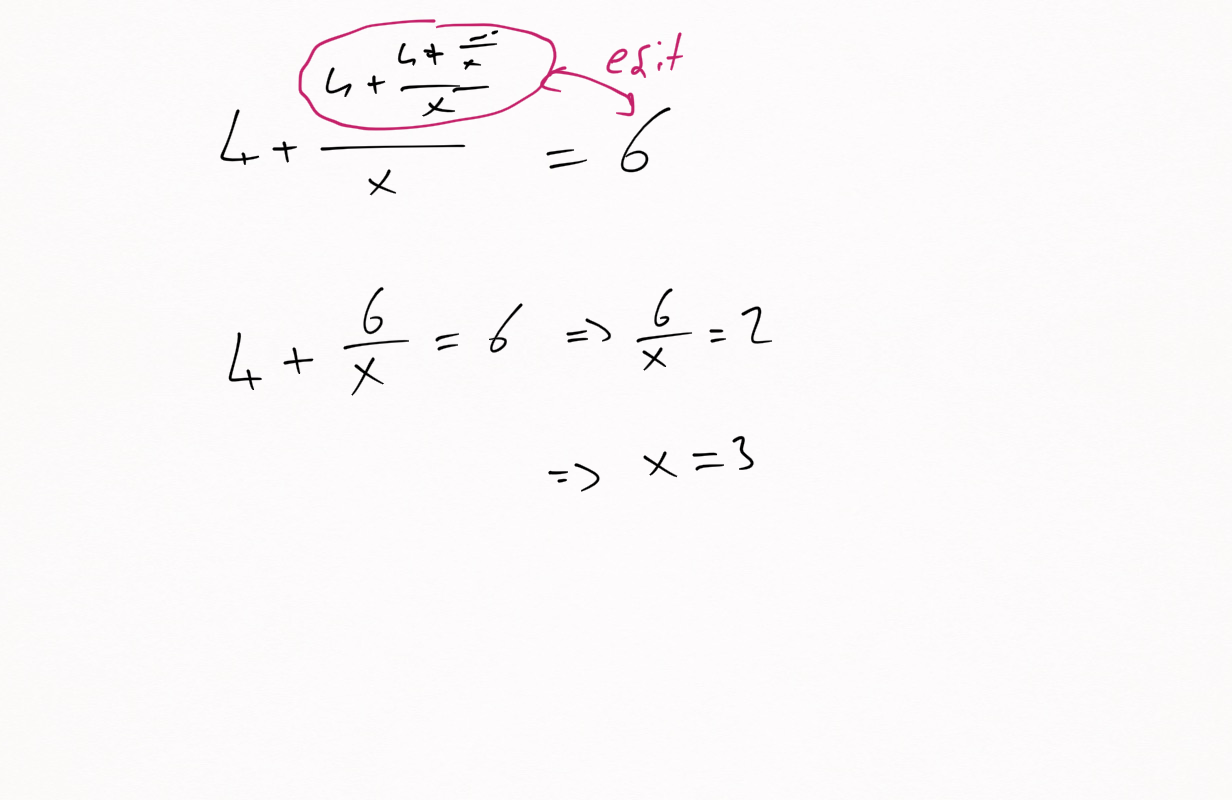 4 + (4 + (4 + .../x)/x)/x = 6
eşit
4 + 6/x = 6 => 6/x = 2
=> x = 3